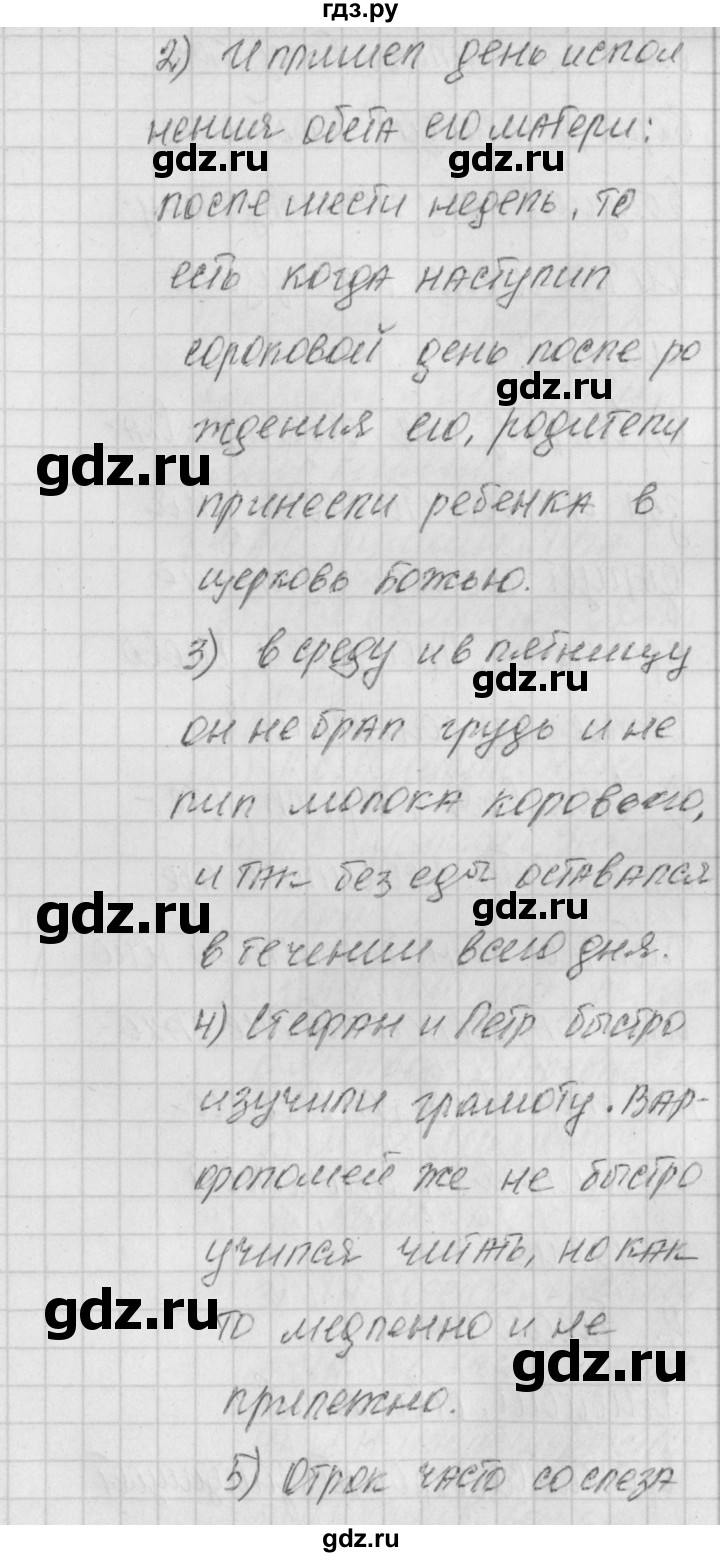 гдз.ру
2) И пришел день испол
нения обета его матери:
gdz.ru gdz.ru
после шести недель, то
есть когда наступил
сороковой день после ро
gdz.ru
ждения его, родители
gdz.ru
принесли ребенка в
церковь Божью.
3) в среду и в пятницу
gdz.ru
он не брал грудь и не
пил молока коровьего,
и так без еды оставался
gdz.ru gdz.ru
в течении всего дня.
4) Стефан и Петр быстро
изучили грамоту. Вар-
фоломей же не быстро
учился читать, но как
gdz.ru
то медленно и не
gdz.ru
прилежно.
5) Отрок часто со слеза
gdz.ru